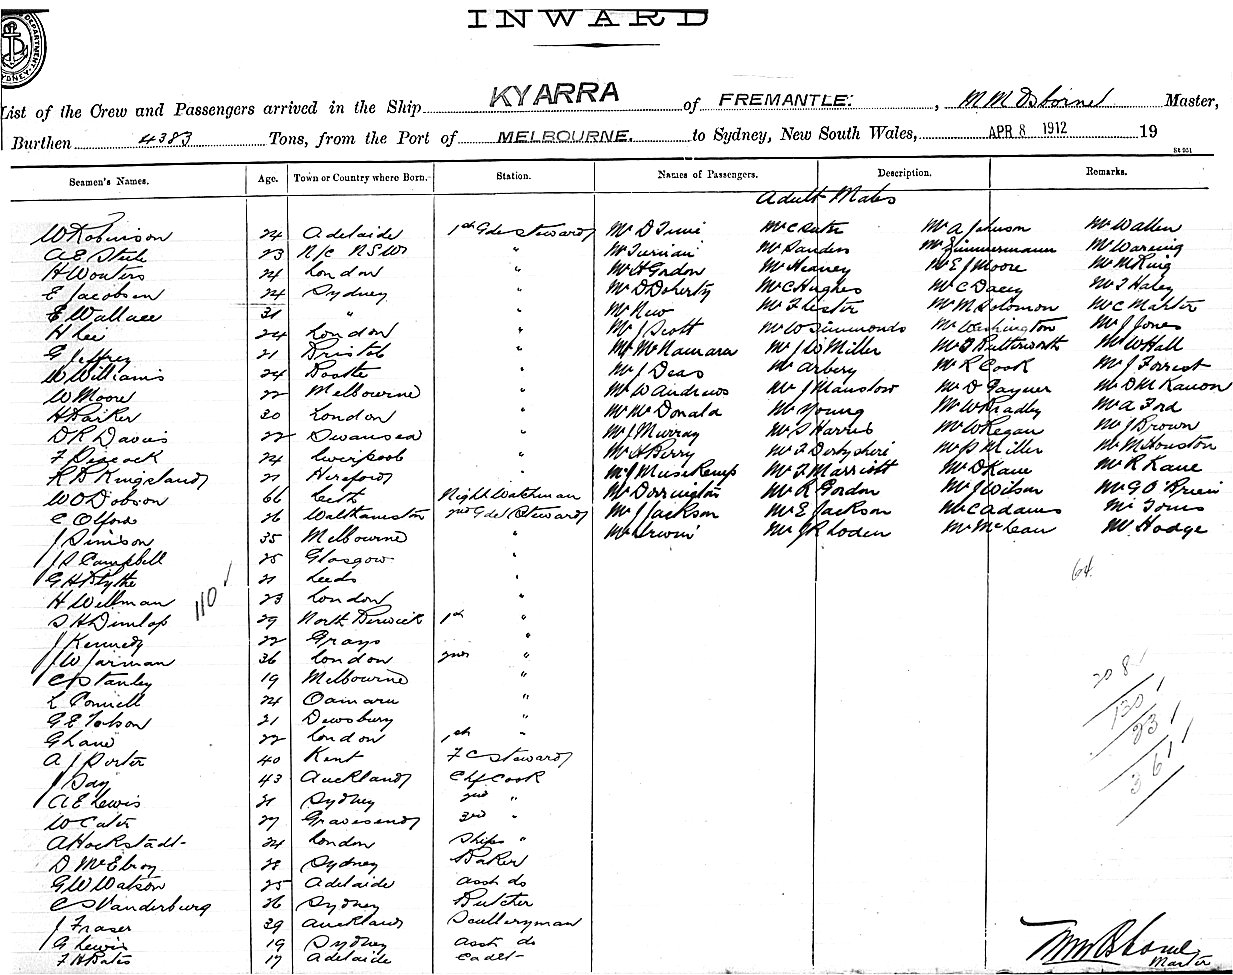 INWARD
List of the Crew and Passengers arrived in the Ship KYARRA of FREMANTLE. , M M Osborne Master,
Burthen 4383 Tons, from the Port of MELBOURNE. to Sydney, New South Wales, APR 8 1912 19
St 951
Seamen's Names. Age. Town or Country where Born. Station. Names of Passengers. Description. Remarks.
Adult Males
W Robinson 24 Adelaide 1st Gde Steward Mr D Mr C Mr A Johnson Mr Wallen
A E Steele 23 N/C NSW " Mr Mr Sanders Mr Zimmermann Mr Wareing
H Wouters 24 London " Mr H Gordon Mr Heaney Mr E J Moore Mr M King
E Jacobsen 24 Sydney " Mr D Doherty Mr C Hughes Mr C Dacey Mr T Haley
E Wallace 31 " " Mr New Mr F Lester Mr M Solomon Mr C Marter
H Lee 24 London " Mr J Scott Mr W Simmonds Mr Washington Mr J Jones
G Jeffrey 21 Bristol " Mr McNamara Mr J W Miller Mr Butterworth Mr W Hall
W Williams 24 Bootle " Mr J Deas Mr Arbery Mr R Cook Mr J Forrest
W Moore 22 Melbourne " Mr W Andrews Mr J Manstow Mr D Gayner Mr D McKanon
H Parker 20 London " Mr McDonald Mr Young Mr W Bradley Mr A Ford
D R Davis 22 Swansea " Mr J Murray Mr S Harris Mr W Regan Mr J Brown
F Peacock 24 Liverpool " Mr H Berry Mr T Derbyshire Mr P Miller Mr M Houston
R D Kingsland 21 Hereford " Mr J Musekamp Mr T Marriott Mr D Kane Mr R Kane
W O Dobson 66 Leith Night Watchman Mr Dorrington Mr R Gordon Mr J Wilson Mr G O'Brien
C Olford 26 Walthamston 2nd Gde Steward Mr J Jackson Mr E Jackson Mr C Adams Mr Tonis
J Simison 35 Melbourne " Mr Irwin Mr J Rhoden Mr McLean Mr Hodge
J S Campbell 25 Glasgow "
G H Blythe 21 Leeds " 64
H Wellman 110 23 London "
S H Dunlop 29 North Berwick 1st "
J Kennedy 22 Grays "
J W Jarman 36 London 2nd "
C Stanley 19 Melbourne " 208
L Connell 24 Oamaru " 130
G E Totson 21 Dewsbury " 23
G Lane 22 London 1st " 361
A J Porter 40 Kent F C Steward
J Day 43 Auckland Chf Cook
A E Lewis 21 Sydney 2nd "
W Cater 27 Gravesend 3rd "
A Hockstadt 24 London Ships "
D McElroy 28 Sydney Baker
G W Watson 25 Adelaide Asst do
C S Vanderburg 26 Sydney Butcher
J Fraser 29 Auckland Sculleryman
G Lewis 19 Sydney Asst do
F H Bates 17 Adelaide Cadet
M M Osborne
Master